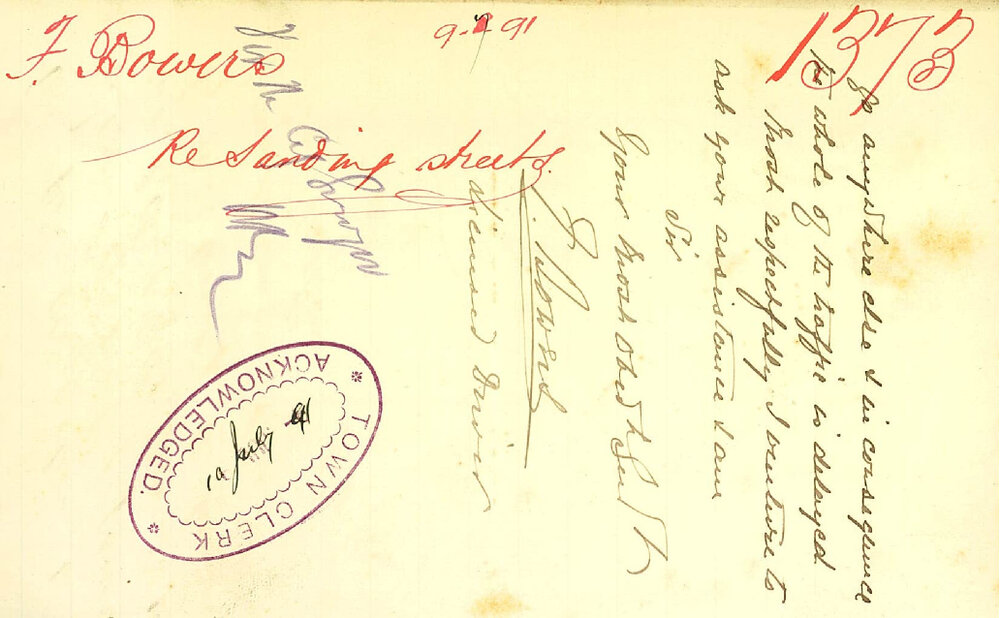 F. Bowers
9-7 91
1373
Re Sanding streets.
go anywhere else & in consequence
the whole of the traffic is delayed
Most respectfully I venture to
ask your assistance I am
Sir
Your Most Obed Servt
F. Bowers
Licensed Driver
TOWN CLERK
ACKNOWLEDGED.
10 July 91